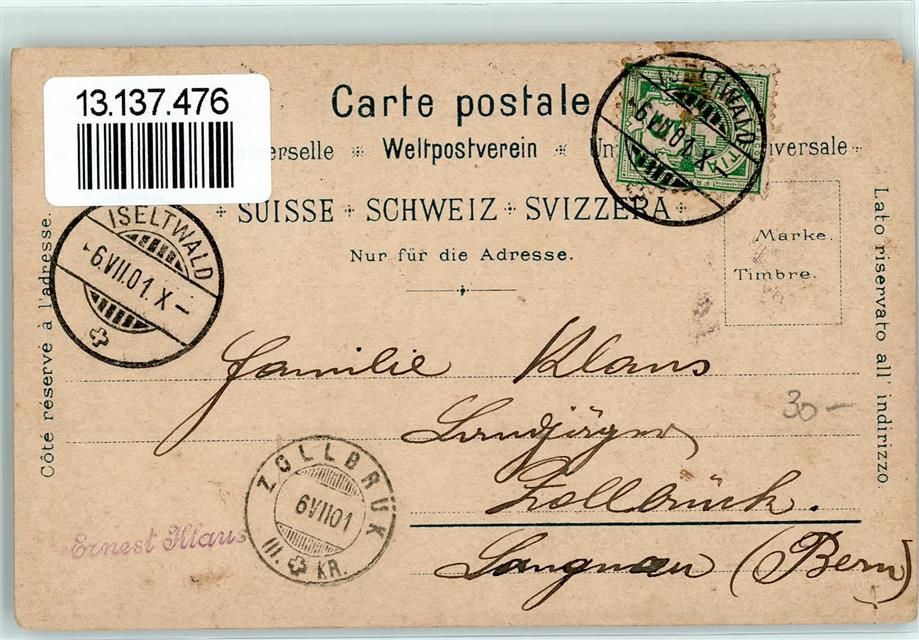 13.137.476
Carte postale
erselle * Weltpostverein * Un iversale
SUISSE SCHWEIZ SVIZZERA
Nur für die Adresse.
Marke.
Timbre.
Côté réservé à l'adresse.
Lato riservato all' indirizzo.
ISELTWALD
6.VII.01.X-
ISELTWALD
6.VII.01.X-
Familie Klaus
Landjäger
Zollbrück.
Langnau (Bern)
30-
ZOLLBRÜK
6VII01
III. KR.
Ernest Klaus